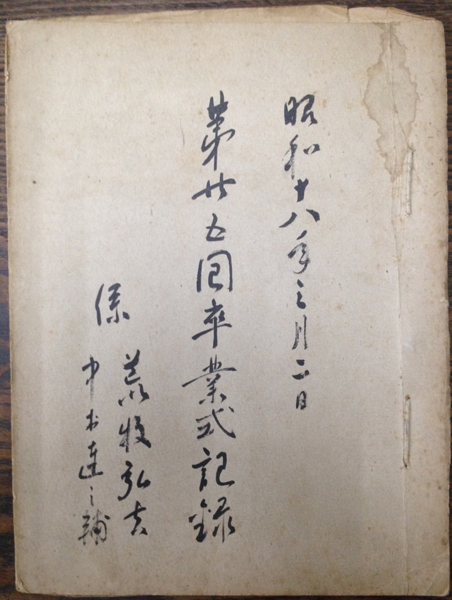 昭和十八年三月二日
第廿五回卒業式記録
係 荒牧弘吉
中村連之輔